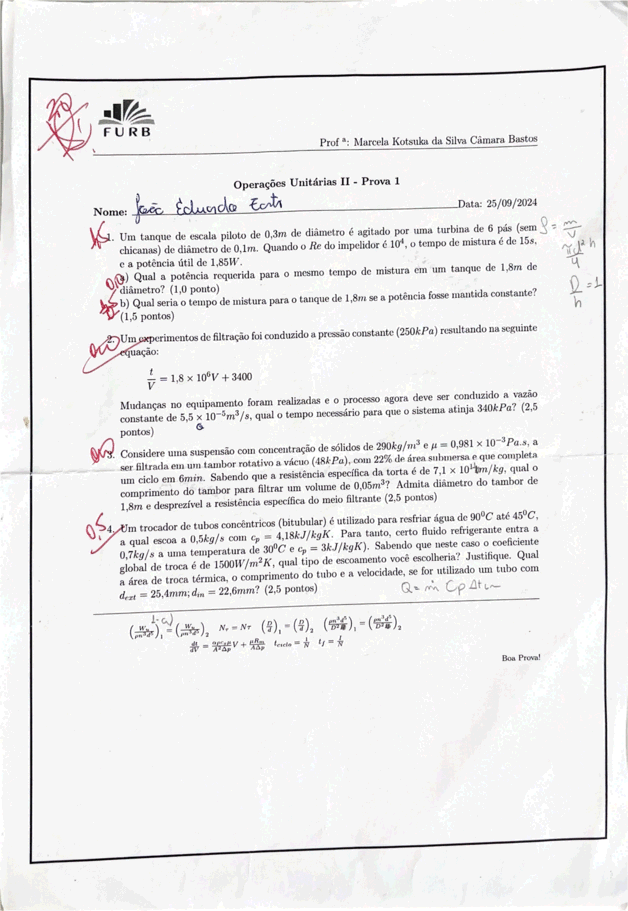 FURB
Prof ª: Marcela Kotsuka da Silva Câmara Bastos
Operações Unitárias II - Prova 1
Nome: João Eduardo
Data: 25/09/2024
1. Um tanque de escala piloto de 0,3m de diâmetro é agitado por uma turbina de 6 pás (sem
chicanas) de diâmetro de 0,1m. Quando o Re do impelidor é 10⁴, o tempo de mistura é de 15s,
e a potência útil de 1,85W.
a) Qual a potência requerida para o mesmo tempo de mistura em um tanque de 1,8m de
diâmetro? (1,0 ponto)
b) Qual seria o tempo de mistura para o tanque de 1,8m se a potência fosse mantida constante?
(1,5 pontos)
ρ = m/V
πd² h/4
D/h = 1
2. Um experimentos de filtração foi conduzido a pressão constante (250kPa) resultando na seguinte
equação:
t/V = 1,8 × 10⁶V + 3400
Mudanças no equipamento foram realizadas e o processo agora deve ser conduzido a vazão
constante de 5,5 × 10⁻⁵m³/s, qual o tempo necessário para que o sistema atinja 340kPa? (2,5
pontos)
Q
3. Considere uma suspensão com concentração de sólidos de 290kg/m³ e μ = 0,981 × 10⁻³Pa.s, a
ser filtrada em um tambor rotativo a vácuo (48kPa), com 22% de área submersa e que completa
um ciclo em 6min. Sabendo que a resistência específica da torta é de 7,1 × 10 m/kg, qual o
comprimento do tambor para filtrar um volume de 0,05m³? Admita diâmetro do tambor de
1,8m e desprezível a resistência específica do meio filtrante (2,5 pontos)
0,5
4. Um trocador de tubos concêntricos (bitubular) é utilizado para resfriar água de 90⁰C até 45⁰C,
a qual escoa a 0,5kg/s com cₚ = 4,18kJ/kgK. Para tanto, certo fluido refrigerante entra a
0,7kg/s a uma temperatura de 30⁰C e cₚ = 3kJ/kgK). Sabendo que neste caso o coeficiente
global de troca é de 1500W/m²K, qual tipo de escoamento você escolheria? Justifique. Qual
a área de troca térmica, o comprimento do tubo e a velocidade, se for utilizado um tubo com
d_ext = 25,4mm; d_in = 22,6mm? (2,5 pontos)
Q = ṁ Cp Δt
Boa Prova!